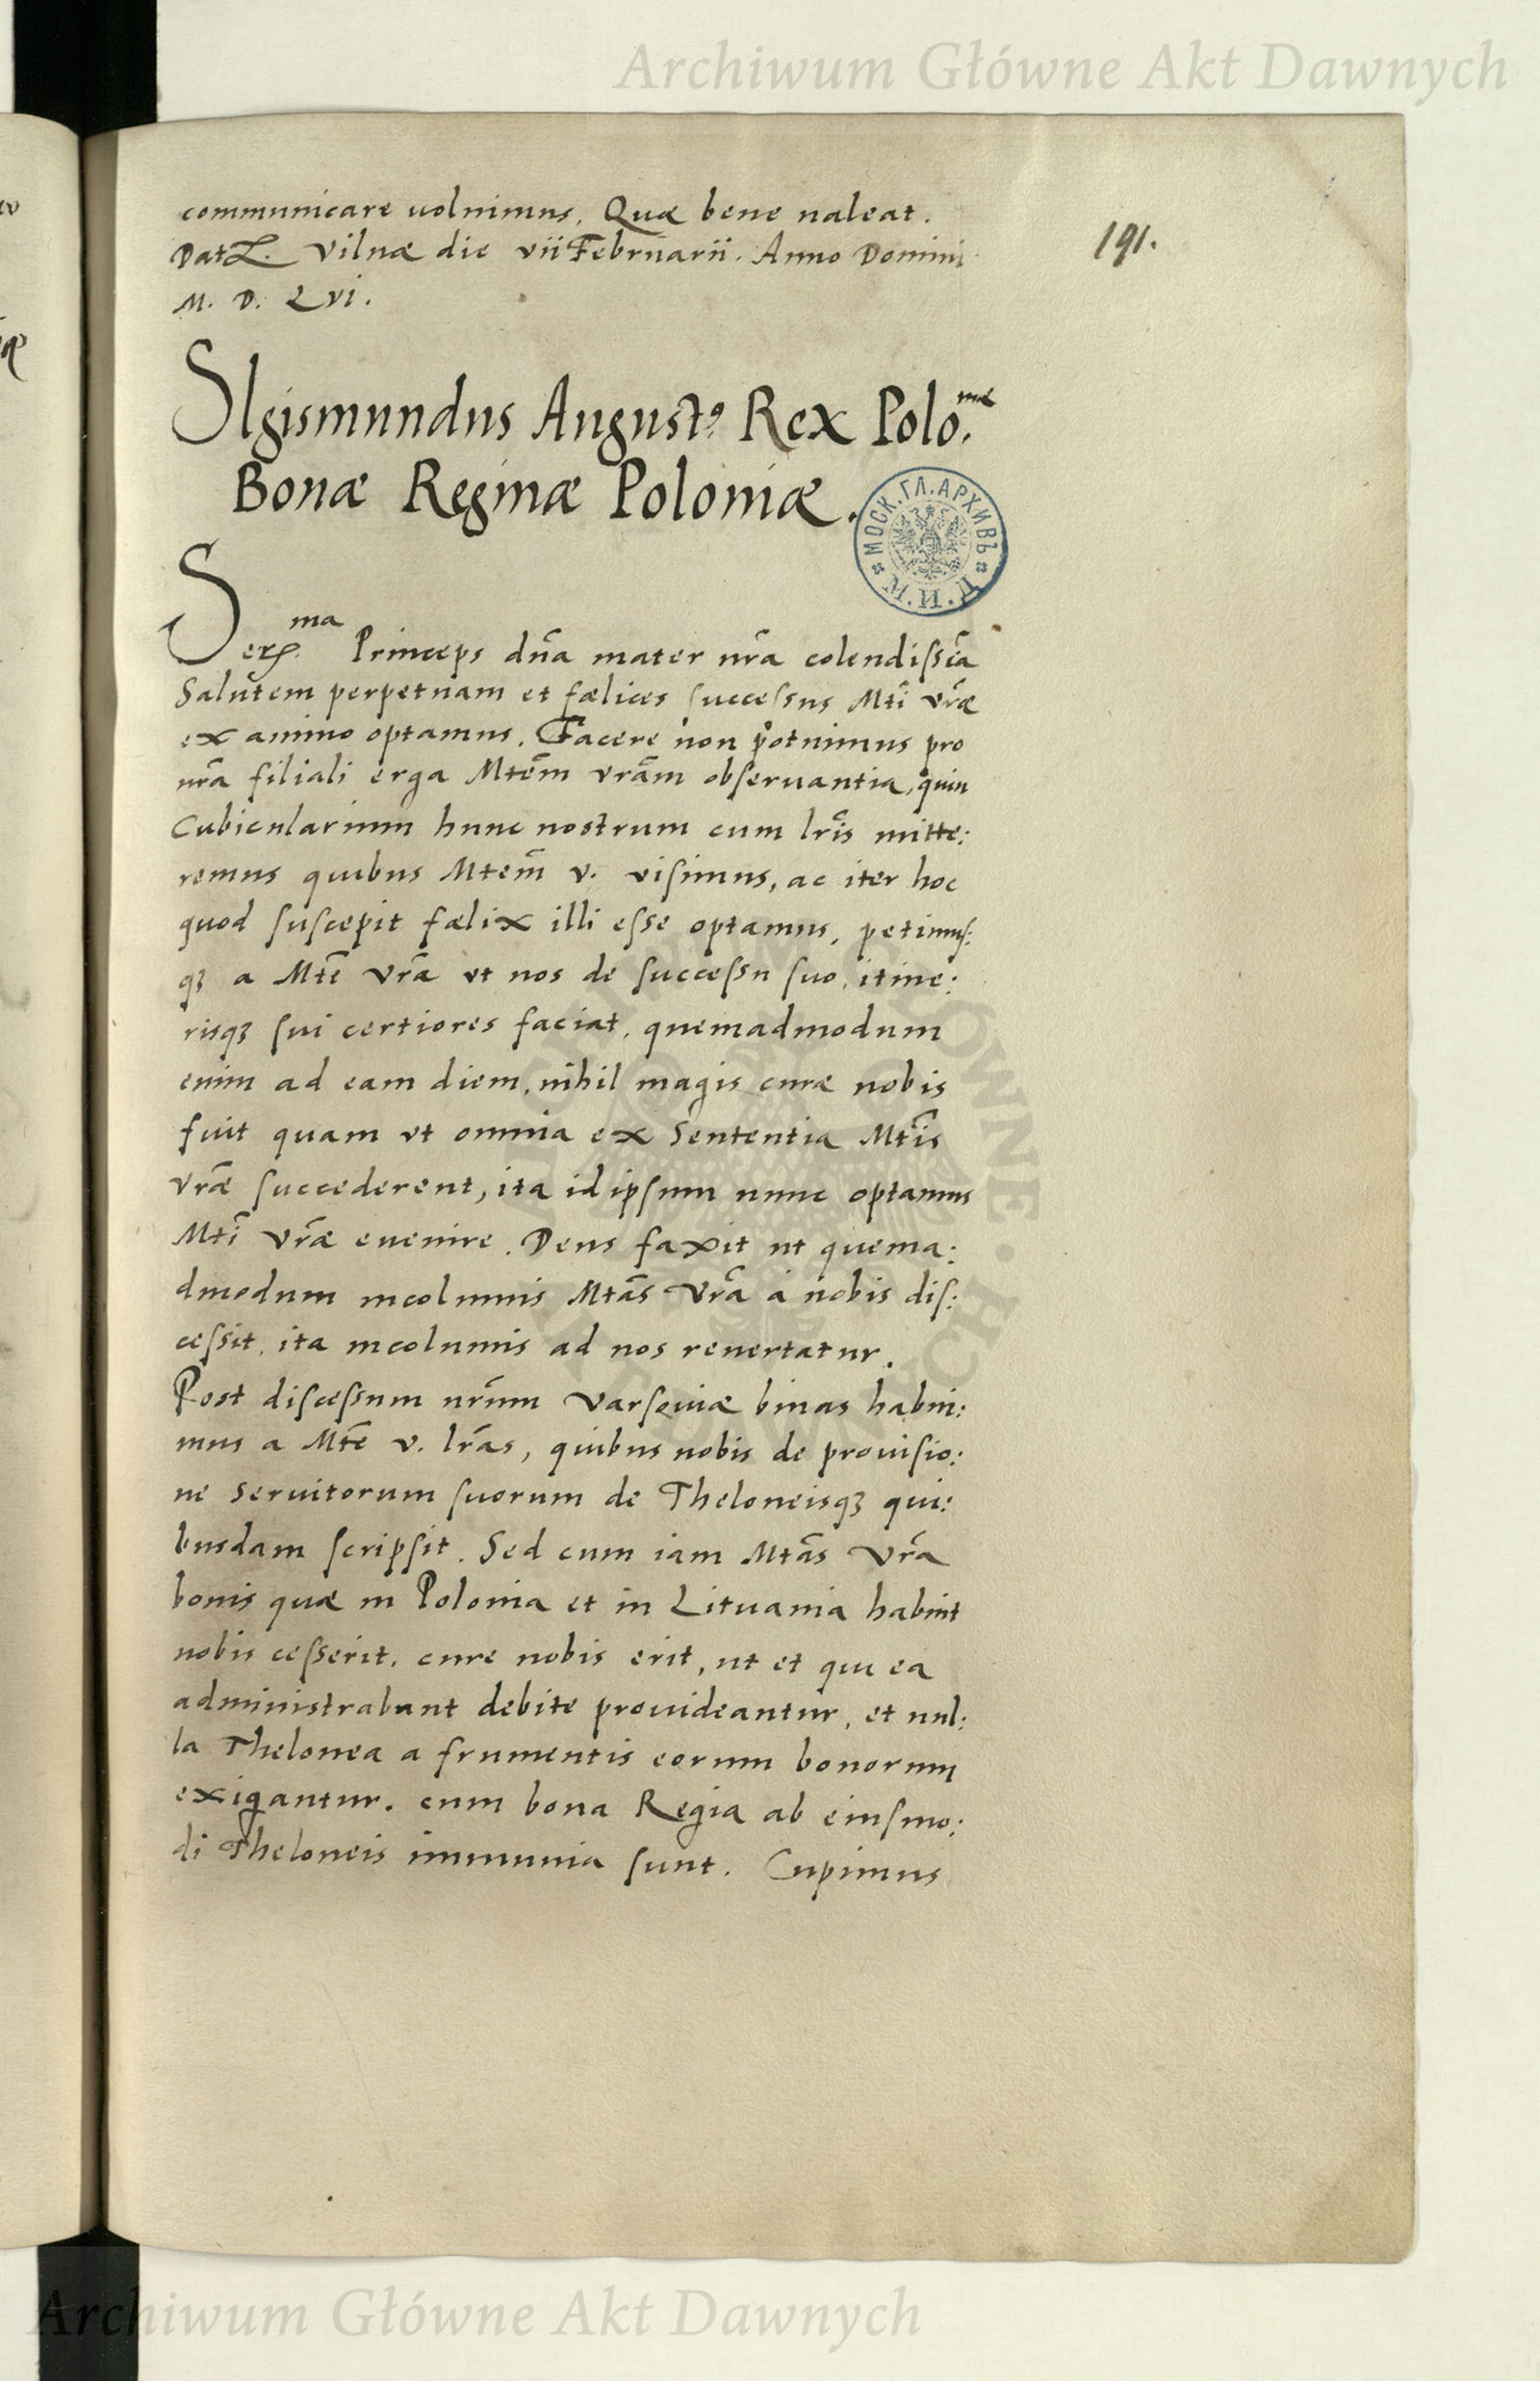 Archiwum Główne Akt Dawnych
communicare uoluimus. Quæ bene ualeat.
191.
Dat. Vilnæ die vii Februarii. Anno Domini
M. D. Lvi.
SIgismundus August9 Rex Polo.niæ
Bonæ Reginæ Poloniæ.
МОСК.ГЛ.АРХИВЪ М.И.Д.
Ser.ma Princeps dña mater nr̃a colendissĩa
Salutem perpetuam et fælices successus Mti͂ vr̃æ
ex animo optamus. Facere non potuimus pro
nr̃a filiali erga Mtem͂ vrãm obseruantia, quin
Cubicularium hunc nostrum cum lrĩs mitte:
remus quibus Mtem͂ v. visimus, ac iter hoc
quod suscepit fælix illi esse optamus, petimus:
qꝫ a Mte͂ vrã vt nos de successu suo, itine:
risqꝫ sui certiores faciat. quemadmodum
enim ad eam diem, nihil magis curæ nobis
fuit quam vt omnia ex Sententia Mti͂s
vræ͂ succederent, ita id ipsum nunc optamus
Mti͂ vræ͂ euenire. Deus faxit ut quema:
dmodum incolumis Mta͂s vrã a nobis dis:
cessit, ita incolumis ad nos reuertatur.
Post discessum nrũm Varsouiæ binas habui:
mus a Mte͂ v. lrãs, quibus nobis de prouisio:
ne Seruitorum suorum de Theloneisqꝫ qui:
busdam scripsit. Sed cum iam Mta͂s vrã
bonis quæ in Polonia et in Lituania habuit
nobis cesserit. cure nobis erit, ut et qui ea
administrabunt debite prouideantur, et nul:
la Thelonea a frumentis eorum bonorum
exigantur. cum bona Regia ab eiusmo:
di Theloneis immunia sunt. Cupimus
Archiwum Główne Akt Dawnych